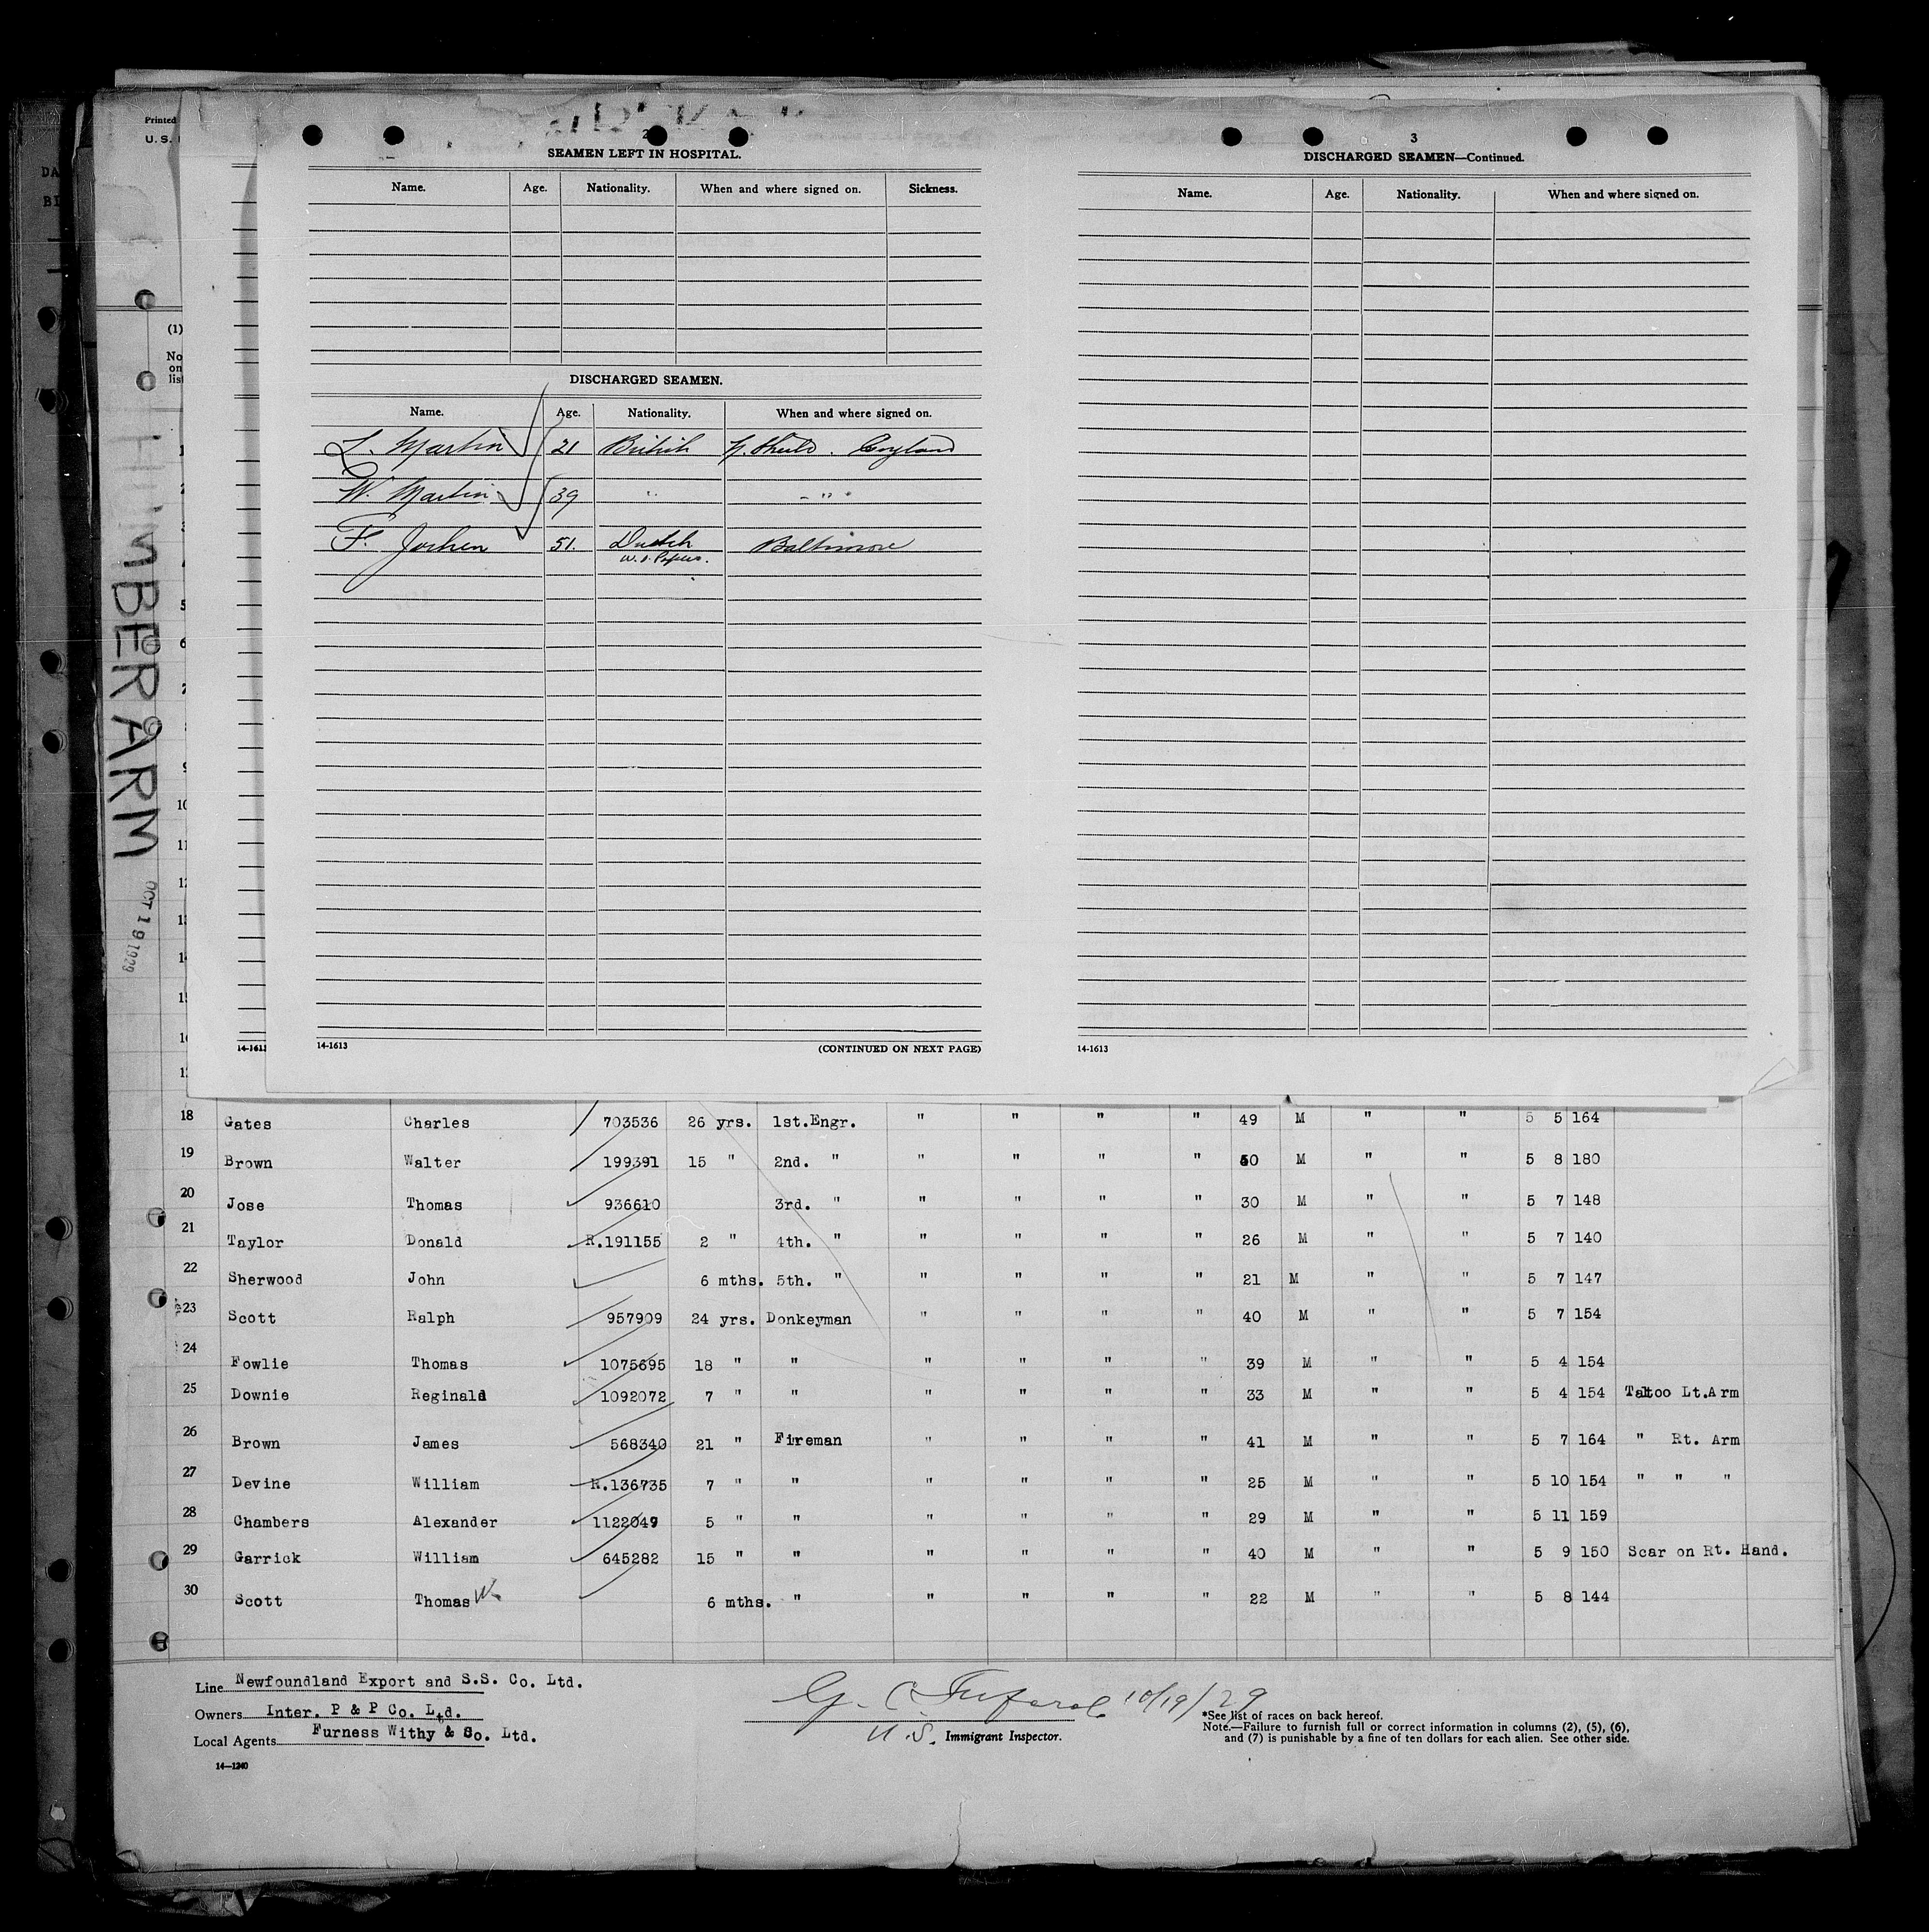 Printed
U. S.
DA
BI
(1)
No
on
list
HUMBER ARM
OCT 19 1929
2
SEAMEN LEFT IN HOSPITAL.
Name. Age. Nationality. When and where signed on. Sickness.
DISCHARGED SEAMEN.
Name. Age. Nationality. When and where signed on.
L. Martin 21 British England
W. Martin 39 " - " " "
F. Jochen 51. Dutch Baltimore
14-1613 (CONTINUED ON NEXT PAGE)
3
DISCHARGED SEAMEN—Continued.
Name. Age. Nationality. When and where signed on.
14-1613
14-1613
5
6
10
11
14
15
18 Gates Charles 703536 26 yrs. 1st.Engr. " " " " 49 M " " 5 5 164
19 Brown Walter 199391 15 " 2nd. " " " " " 50 M " " 5 8 180
20 Jose Thomas 936610 3rd. " " " " " 30 M " " 5 7 148
21 Taylor Donald R.191155 2 " 4th. " " " " " 26 M " " 5 7 140
22 Sherwood John 6 mths. 5th. " " " " " 21 M " " 5 7 147
23 Scott Ralph 957909 24 yrs. Donkeyman " " " " 40 M " " 5 7 154
24 Fowlie Thomas 1075695 18 " " " " " " 39 M " " 5 4 154
25 Downie Reginald 1092072 7 " " " " " " 33 M " " 5 4 154 Tattoo Lt.Arm
26 Brown James 568340 21 " Fireman " " " " 41 M " " 5 7 164 " Rt. Arm
27 Devine William R.136735 7 " " " " " " 25 M " " 5 10 154 " " "
28 Chambers Alexander 1122049 5 " " " " " " 29 M " " 5 11 159
29 Garrick William 645282 15 " " " " " " 40 M " " 5 9 150 Scar on Rt. Hand.
30 Scott Thomas W. 6 mths. " " " " " 22 M " " 5 8 144
Line Newfoundland Export and S.S. Co. Ltd.
Owners Inter. P & P Co. Ltd.
Local Agents Furness Withy & Co. Ltd.
14—1240
G. C. 10/19/29
U.S. Immigrant Inspector.
*See list of races on back hereof.
Note.—Failure to furnish full or correct information in columns (2), (5), (6),
and (7) is punishable by a fine of ten dollars for each alien. See other side.